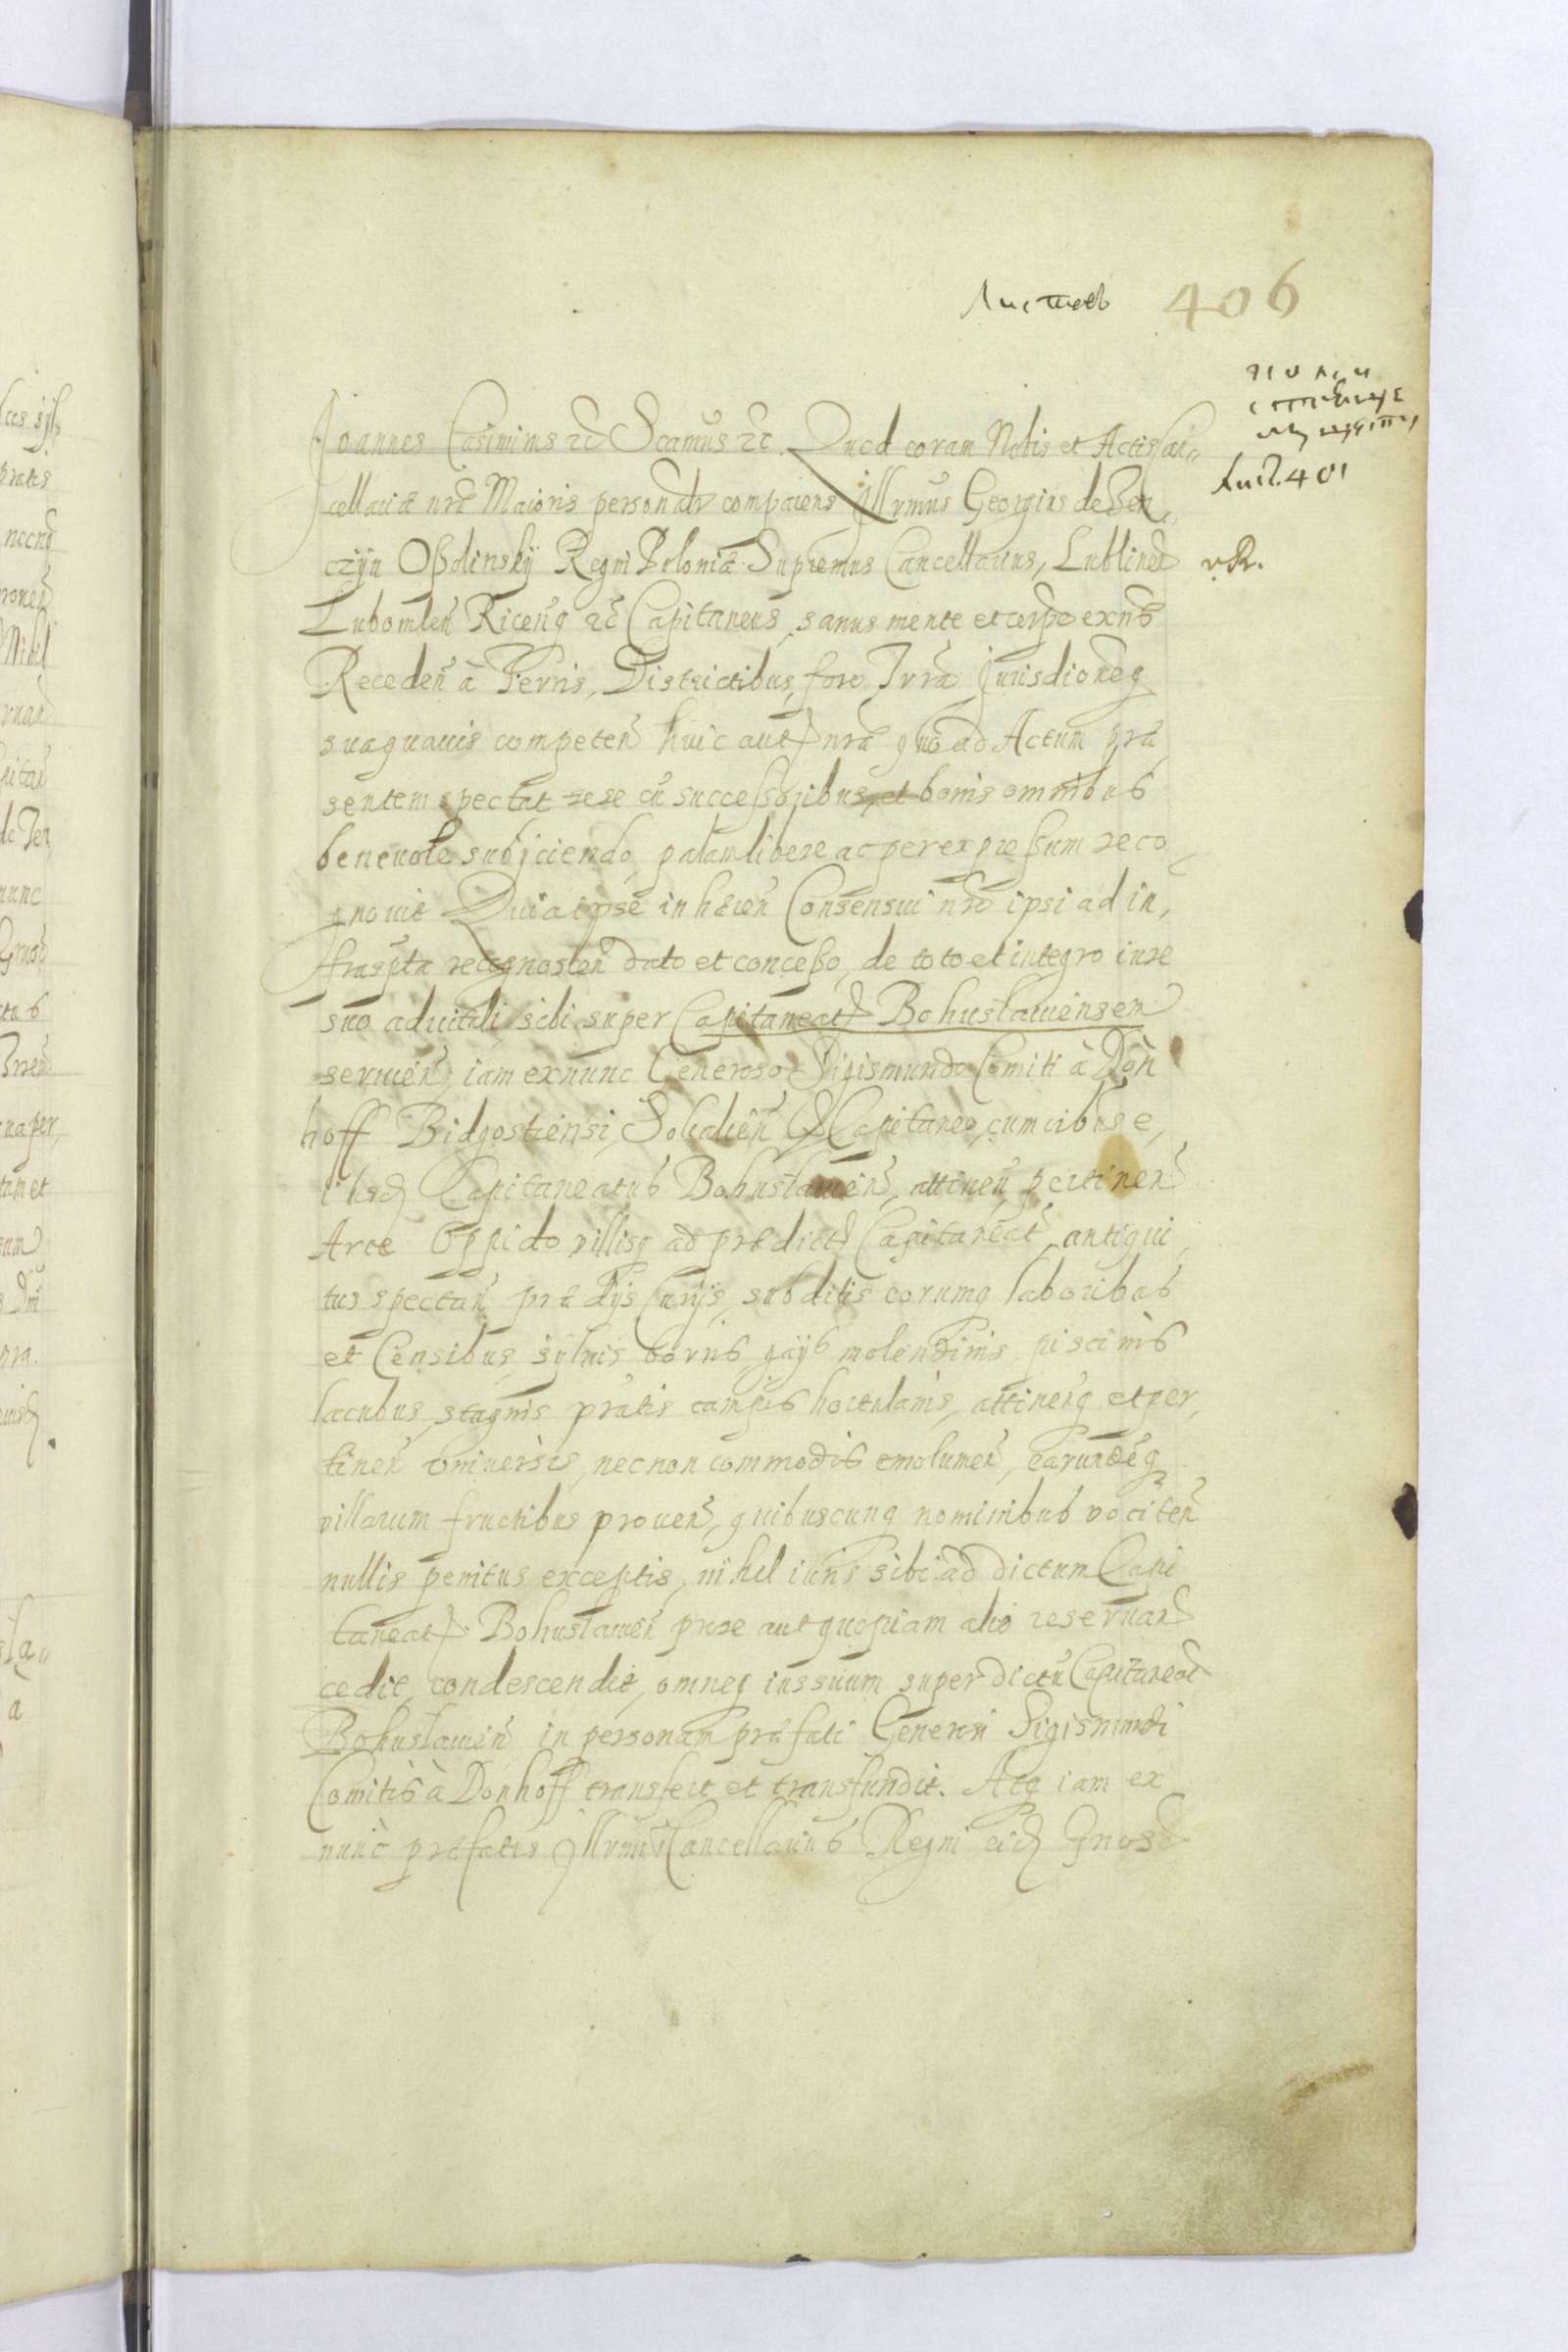 Листовъ 406
Лист. 401
v. R.
Joannes Casimirus etc Scamus etc. Quod coram Nobis et Actis Can„
cellariæ nræ Maioris personalr comparens Illrmus Georgius de Ten„
czyn Oßolinsky Regni Poloniæ Supremus Cancellarius, Lublinen
Lubomlen Riceñq etc Capitaneus, sanus mente et corpe exñs
Receden à Terris, Districtibus, foro Irrã jurisdioneq
sua quavis competen huic aut nrã quo ad Actum præ
sentem spectat sese cũ successoribus, et bonis omnibus
benevole subjciendo, palam libere ac per expressum reco
gnovit Quia ipse inhæren Consensui nro ipsi ad in„
frascpta recognoscen dato et conceßo, de toto et integro iure
suo advitali sibi super Capitaneat Bohuslaviensem
servien, iam exnunc Generoso Sigismundo Comiti à Dön
hoff Bidgostiensi, Sokalien etc Capitaneo, cum iribus e„
iusd Capitaneatus Bohuslavien, attinen, pertinen
Arce Oppido villisq ad prædict Capitaneat, antiqui„
tus spectan prædijs Curijs, subditis eorumq laboribus
et Censibus, sylvis borris gajis molendinis piscinis
lacubus, stagnis pratis campis hortulanis, attineñq et per„
tinen universis, necnon commodis emolumen, earundeq
villarum fructibus proven, quibuscunq nominibus vociten
nullis penitus exceptis, nihil iuris sibi ad dictum Capi
taneat Bohuslavien prose aut quopiam alio reservan
cedit, condescendit, omneq ius suum super dictũ Capitaneat
Bohuslavien in personam præfati Generosi Sigismundi
Comitis à Donhoff transfert et transfundit. Atq iam ex
nunc præfatus Illrmus Cancellarius Regni eid Gnoso